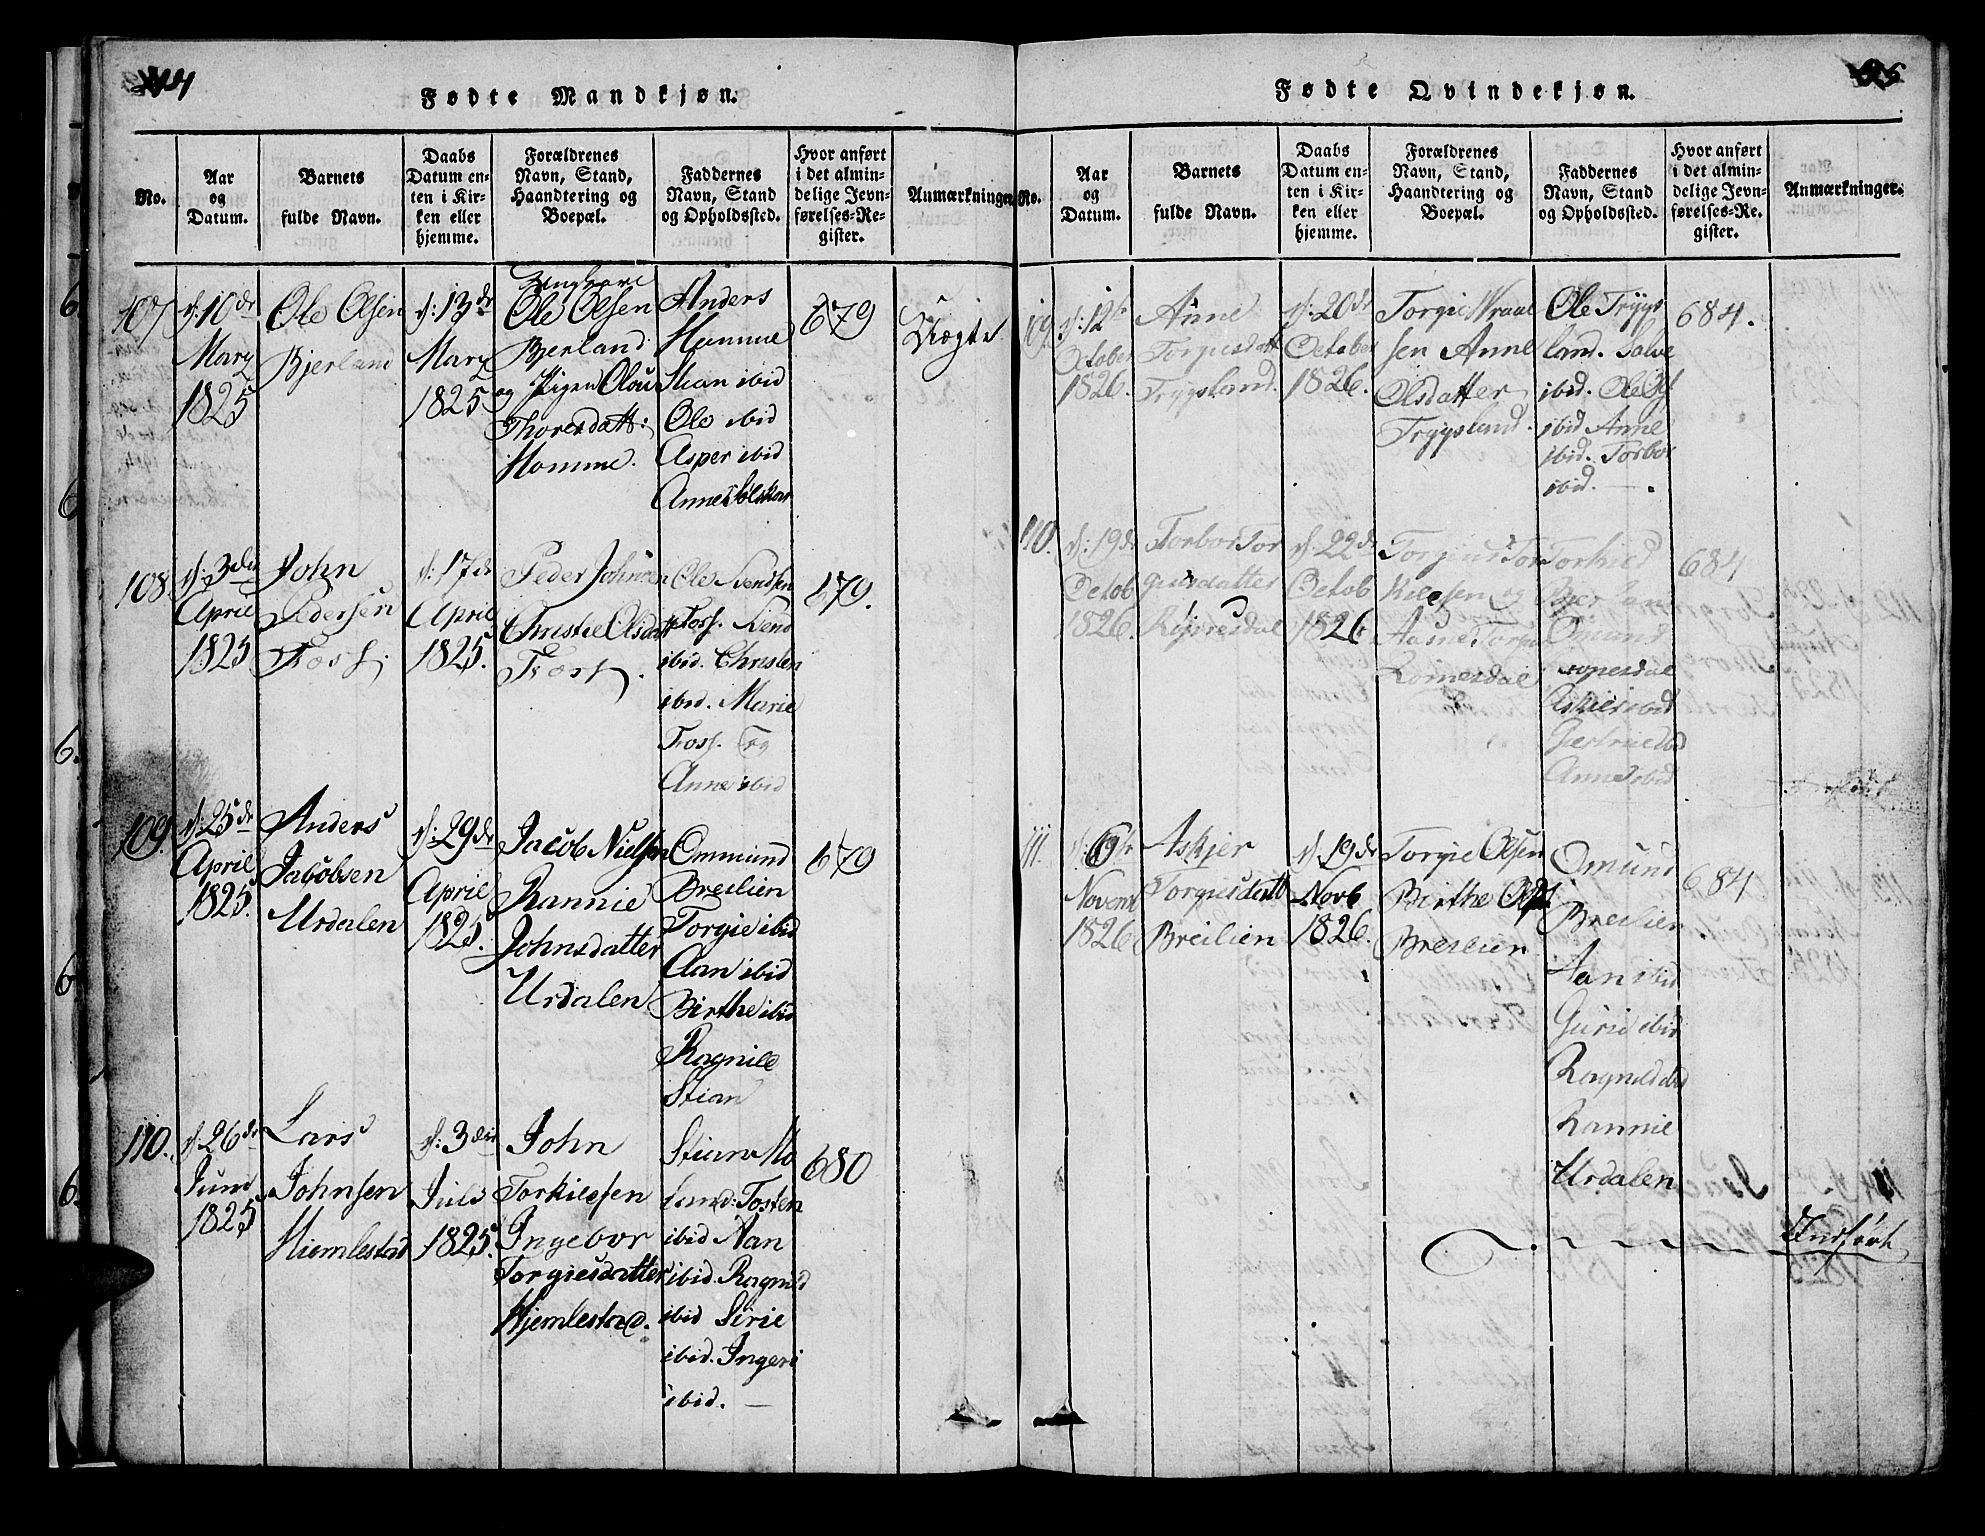 44
Fødte Mandkjøn.
No.
Aar
og
Datum.
Barnets
fulde Navn.
Daabs
Datum en-
ten i Kir-
ken eller
hjemme.
Forældrenes
Navn, Stand,
Haandtering og
Boepæl.
Faddernes
Navn, Stand
og Opholdssted.
Hvor anført
i det almin-
delige Jevn-
førelses-Re-
gister.
Anmærkninger.
107
d: 10de
Marz
1825
Ole Olsen
Bjerland
d: 13de
Marz
1825
Ungkarl
Ole Olsen
Bjerland
og Pigen Olou
Thoresdatt:
Homme.
Anders
Homme
Stian ibid
Ole ibid
Asper ibid
Anne
679
Uægte
108.
d: 3die
April
1825
John
Pedersen
Foss.
d: 17de
April
1825.
Peder Johnsen
Christie Olsdatt
Foss.
Ole Svendsen
Foss. Svend
ibid. Christen
ibid. Marie
Foss. Og
Anne ibid
679.
109.
d: 25de
April
1825.
Anders
Jabobsen
Urdalen
d: 29de
April
1825.
Jacob Nielsen
Rannie
Johnsdatter
Urdalen
Ommund
Breilien
Torgie ibid
Aan ibid
Birthe ibid
Ragnile
Stian
679
110.
d: 26de
Juni
1825
Lars
Johnsen
Hiemlestad
d: 3die
Juli
1825.
John
Torkilsen
Ingebor
Torgiesdatter
Hjemlestad.
Stian Mo
land: Tosten
ibid Aan
ibid. Ragnild
ibid Sirie
ibid. Ingeri
ibid.
680
45
Fødte Qvindekjøn.
No.
Aar
og
Datum.
Barnets
fulde Navn.
Daabs
Datum en-
ten i Kir-
ken eller
hjemme.
Forældrenes
Navn, Stand,
Haandtering og
Boepæl.
Faddernes
Navn, Stand
og Opholdssted.
Hvor anført
i det almin-
delige Jevn-
førelses-Re-
gister.
Anmærkninger.
109
d: 12te
October
1826.
Anne
Torgiesdatt
Trygsland.
d: 20de
October
1826.
Torgie Wraal
sen Anne
Olsdatter
Trygsland.
Ole Trygs
land. Salve
ibid. Ole
ibid Anne
ibid. Torbor
ibid.
684.
110.
d: 19de
Octob
1826.
Torbor Tor
giusdatter
d: 22de
Octob
1826
Torgius Tor
Kilesen og
Aasne Torgi
Torkild
Bjerland
Omund
Askier ibid
Anne ibid
684
111.
d: 6te
Novemb
1826
Askjer
Torgiesdatt
Breilien
d: 19de
Novb
1826.
Torgie Olsen
Birthe Olsd
Breilien
Omund
Breilien
Aan ibid
Gurie ibid
Ragnild ibid
Rannie
Urdalen
684
Indført